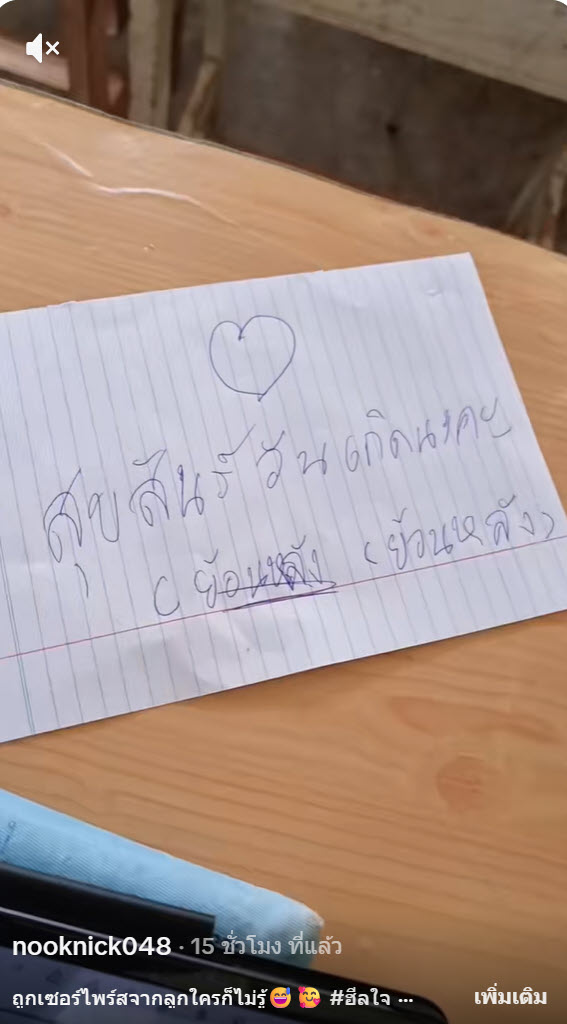 สุขสันร์วันเกิดนะคะ
(ย้อนหลัง (ย้อนหลัง)
nooknick048 · 15 ชั่วโมง ที่แล้ว
ถูกเซอร์ไพร์สจากลูกใครก็ไม่รู้😅🥰 #ฮีลใจ ... เพิ่มเติม